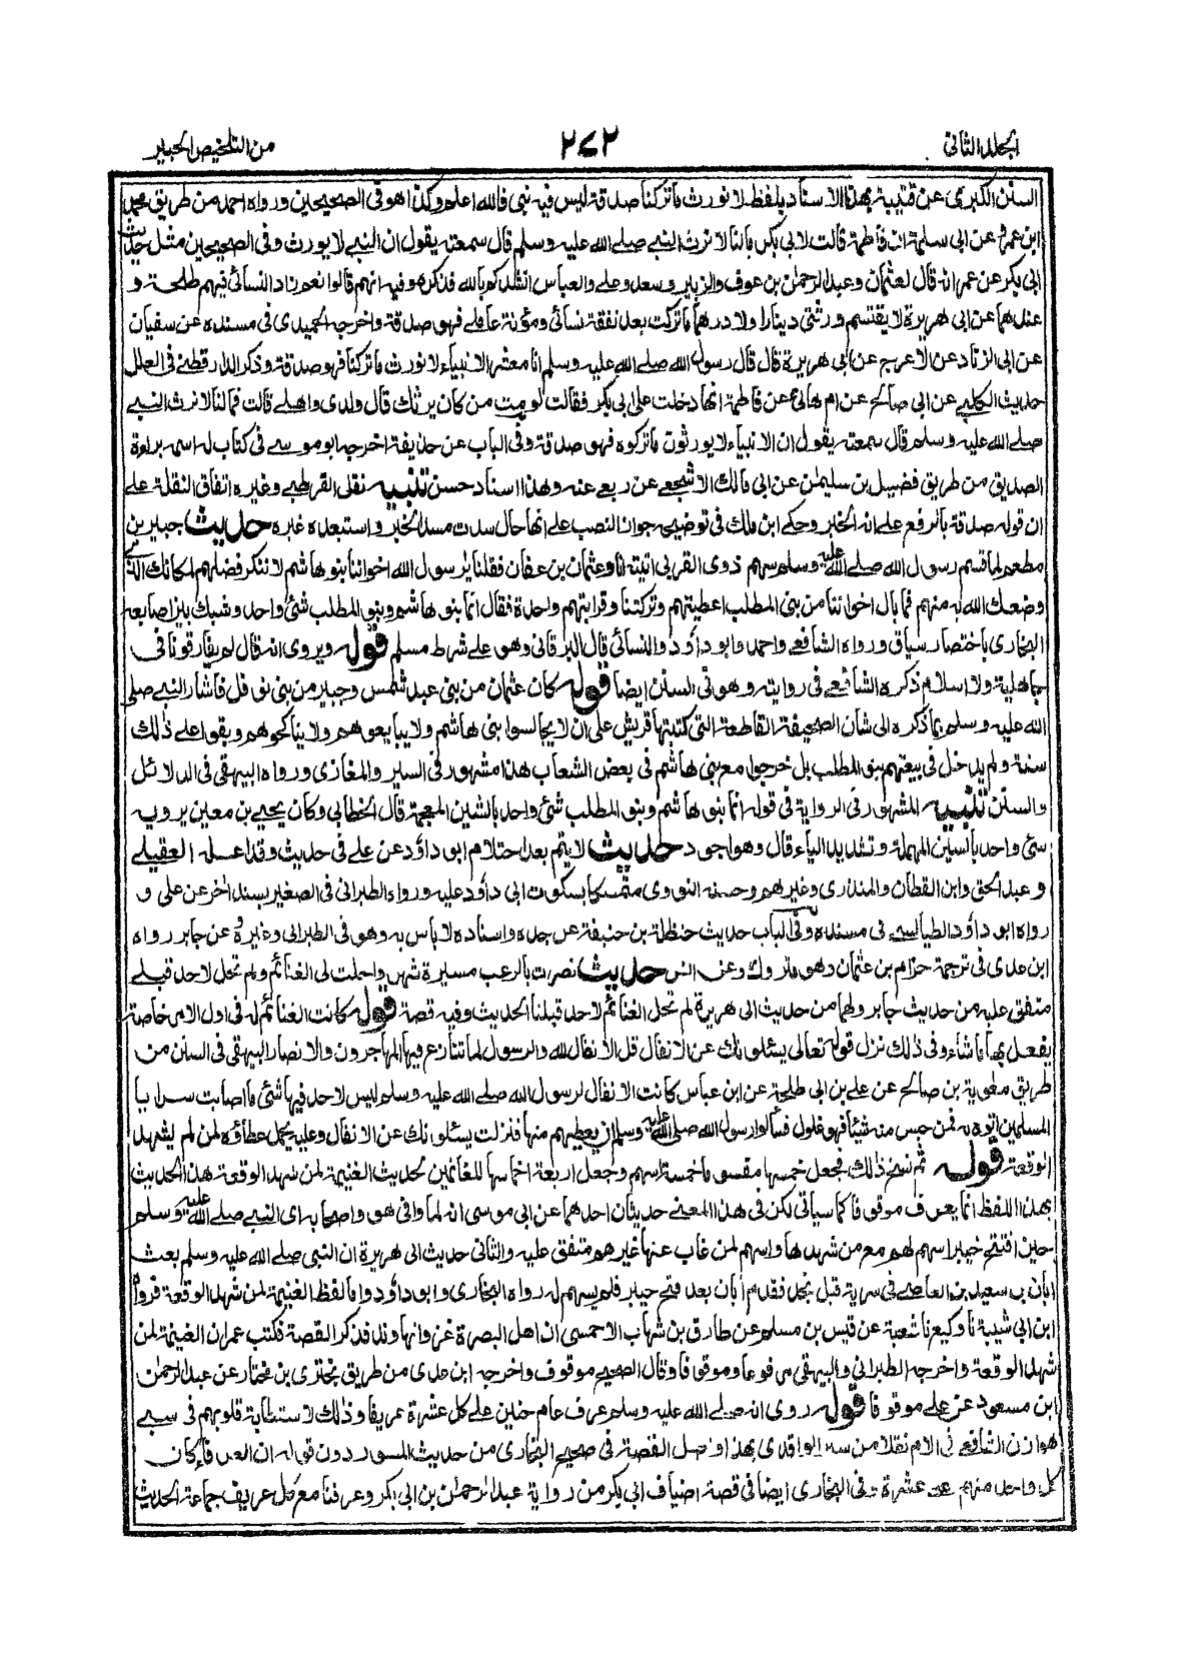 الجلد الثاني
٢٧٢
من التلخيص الحبير
السنن الكبرى عن قتيبة بهذا الاسناد بلفظ لا نورث ما تركنا صدقة ليس فيه نبي فالله اعلم وكذا هو في الصحيحين ورواه احمد من طريق محمد
ابن عمرو عن ابي سلمة ان فاطمة قالت لابي بكر ما لنا لا نرث النبي صلى الله عليه وسلم قال سمعته يقول ان النبي لا يورث وفي الصحيحين مثل حديث
ابي بكر عن عمر انه قال لعثمان وعبد الرحمن بن عوف والزبير وسعد وعلي والعباس انشدكم بالله فذكره وفيه انهم قالوا نعم زاد النسائي فيهم طلحة و
عندهما عن ابي هريرة لا يقتسم ورثتي دينارا ولا درهما ما تركت بعد نفقة نسائي ومؤنة عاملي فهو صدقة واخرجه الحميدي في مسنده عن سفيان
عن ابي الزناد عن الاعرج عن ابي هريرة قال قال رسول الله صلى الله عليه وسلم انا معشر الانبياء لا نورث ما تركنا فهو صدقة وذكر الدارقطني في العلل
حديث الكلبي عن ابي صالح عن ام هانئ عن فاطمة انها دخلت على ابي بكر فقالت لو مت من كان يرثك قال ولدي واهلي قالت فما لنا لا نرث النبي
صلى الله عليه وسلم قال سمعته يقول ان الانبياء لا يورثون ما تركوه فهو صدقة وفي الباب عن حذيفة اخرجه ابو موسى في كتاب له اسمه براءة
الصديق من طريق فضيل بن سليمن عن ابي مالك الاشجعي عن ربعي عنه وهذا اسناد حسن تنبيه نقل القرطبي وغيره اتفاق النقلة على
ان قوله صدقة بالرفع على انه الخبر وحكى ابن مالك في توضيحه جواز النصب على انها حال سدت مسد الخبر واستبعده غيره حديث جبير بن
مطعم لما قسم رسول الله صلى الله عليه وسلم سهم ذوي القربى اتيته انا وعثمان بن عفان فقلنا يا رسول الله اخواننا بنو هاشم لا ننكر فضلهم لمكانك الذي
وضعك الله به منهم فما بال اخواننا من بني المطلب اعطيتهم وتركتنا وقرابتهم واحدة فقال انما بنو هاشم وبنو المطلب شئ واحد وشبك بين اصابعه
البخاري باختصار سياق ورواه الشافعي واحمد وابو داؤد والنسائي قال البرقاني وهو على شرط مسلم قوله ويروى انه قال لم يفارقونا في
جاهلية ولا اسلام ذكره الشافعي في روايته وهو في السنن ايضا قوله كان عثمان من بني عبد شمس وجبير من بني نوفل فاشار النبي صلى
الله عليه وسلم بما ذكره الى شان الصحيفة القاطعة التي كتبتها قريش على ان لا يجالسوا بني هاشم ولا يبايعوهم ولا يناكحوهم وبقوا على ذلك
سنة ولم يدخل في بيعتهم بنو المطلب بل خرجوا مع بني هاشم في بعض الشعاب هذا مشهور في السير والمغازي ورواه البيهقي في الدلائل
والسنن تنبيه المشهور في الرواية في قوله انما بنو هاشم وبنو المطلب شئ واحد بالشين المعجمة قال الخطابي وكان يحيى بن معين يرويه
سئ واحد بالسين المهملة وتشديد الياء قال وهو اجود حديث لا يتم بعد احتلام ابو داؤد عن علي في حديث وقد اعله العقيلي
وعبد الحق وابن القطان والمنذري وغيرهم وحسنه النووي متمسكا بسكوت ابي داؤد عليه ورواه الطبراني في الصغير بسند اخر عن علي و
رواه ابو داؤد الطيالسي في مسنده وفي الباب حديث حنظلة بن حنيفة عن جده واسناده لا باس به وهو في الطبراني وغيره وعن جابر رواه
ابن عدي في ترجمة حزام بن عثمان وهو متروك وعن انس حديث نصرت بالرعب مسيرة شهر واحلت لي الغنائم ولم تحل لاحد قبلي
متفق عليه من حديث جابر ولهما من حديث ابي هريرة لم تحل الغنائم لاحد قبلنا الحديث وفيه قصة قوله كانت الغنائم له في اول الامر خاصة
يفعل بها ما شاء وفي ذلك نزل قوله تعالى يسئلونك عن الانفال قل الانفال لله والرسول لما تنازع فيها المهاجرون والانصار البيهقي في السنن من
طريق معوية بن صالح عن علي بن ابي طلحة عن ابن عباس كانت الانفال لرسول الله صلى الله عليه وسلم ليس لاحد فيها شئ ما اصابت سرايا
المسلمين اتوه به فمن حبس منه شيئا فهو غلول فسألوا رسول الله صلى الله عليه وسلم ان يعطيهم منها فنزلت يسئلونك عن الانفال وعليه يحمل عطاؤه لمن لم يشهد
الوقعة قوله ثم نسخ ذلك فجعل خمسها مقسوما خمسة اسهم وجعل اربعة اخماسها للغانمين لحديث الغنيمة لمن شهد الوقعة هذا الحديث
بهذا اللفظ انما يعرف موقوفا كما سيأتي لكن في هذا المعنى حديثان احدهما عن ابي موسى انه لما وافى هو واصحابه اى النبي صلى الله عليه وسلم
حين افتتح خيبر اسهم لهم مع من شهدها واسهم لمن غاب عنها غيرهم متفق عليه والثاني حديث ابي هريرة ان النبي صلى الله عليه وسلم بعث
ابان بن سعيد بن العاصي في سرية قبل نجد فقدم ابان بعد فتح خيبر فلم يسهم له رواه البخاري وابو داؤد واما لفظ الغنيمة لمن شهد الوقعة فرواه
ابن ابي شيبة نا وكيع نا شعبة عن قيس بن مسلم عن طارق بن شهاب الاحمسي ان اهل البصرة غزوا نهاوند فذكر القصة فكتب عمر ان الغنيمة لمن
شهد الوقعة واخرجه الطبراني والبيهقي مرفوعا وموقوفا وقال الصحيح موقوف واخرجه ابن عدي من طريق بختري بن مختار عن عبد الرحمن
ابن مسعود عن علي موقوفا قوله روى انه صلى الله عليه وسلم عرف عام حنين على كل عشرة عريفا وذلك لاستطابة قلوبهم في سبي
هوازن الشافعي في الام نقلا من سير الواقدي بهذا واصل القصة في صحيح البخاري من حديث المسور دون قوله ان العرفاء كان
كل واحد منهم على عشرة وفي البخاري ايضا في قصة اضياف ابي بكر من رواية عبد الرحمان بن ابي بكر وعرفنا مع كل عريف جماعة الحديث